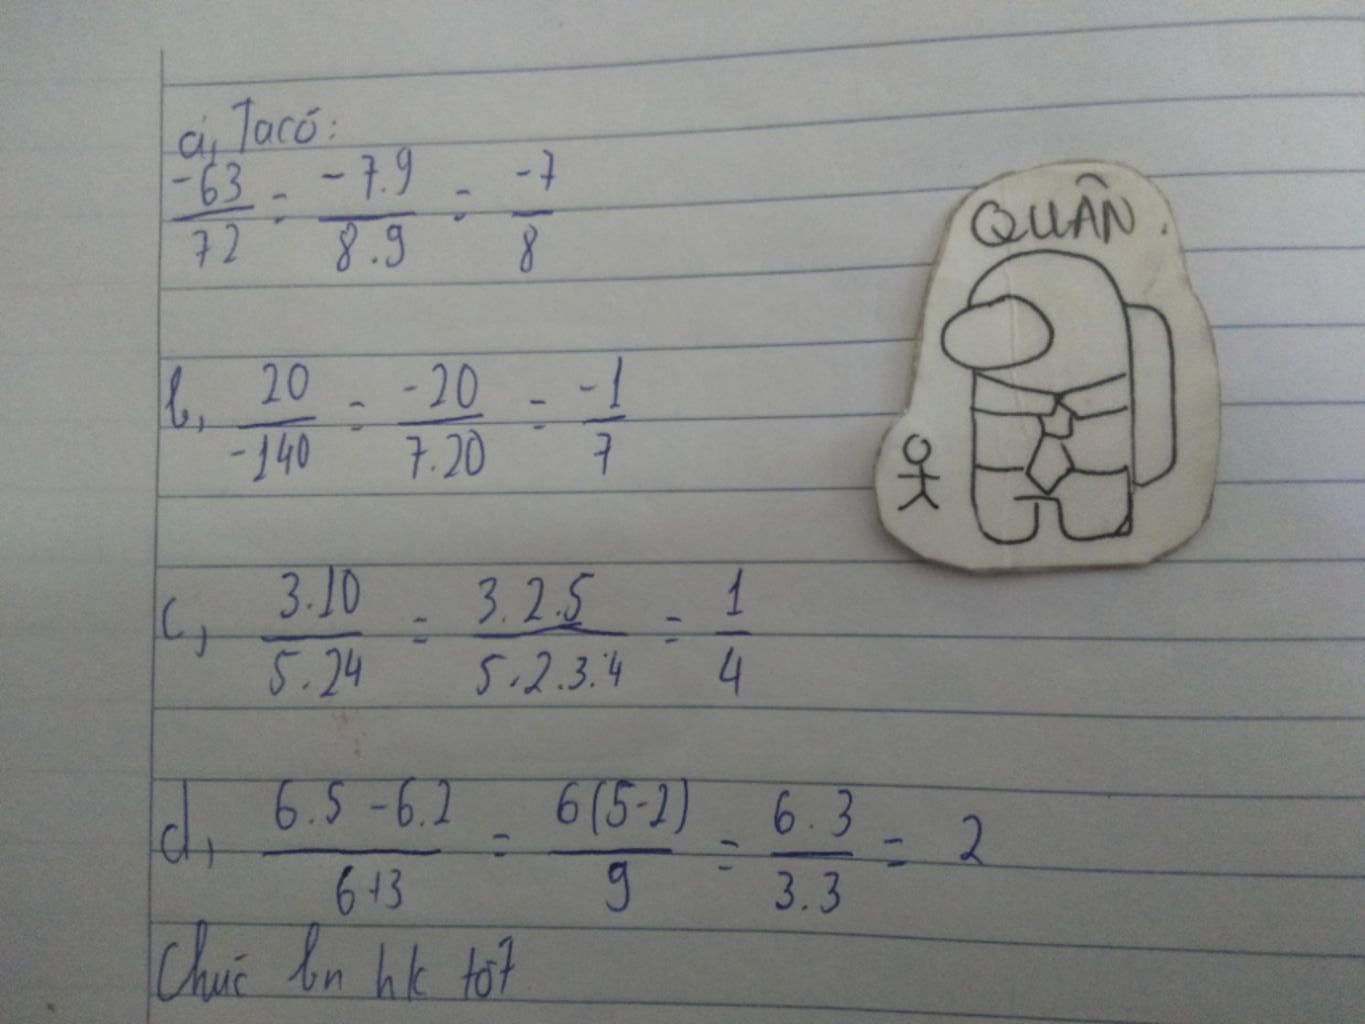 a, Ta có:
-63/72 = -7.9/8.9 = -7/8
QUÂN.
b, 20/-140 = -20/7.20 = -1/7
c, 3.10/5.24 = 3.2.5/5.2.3.4 = 1/4
d, 6.5-6.2/6+3 = 6(5-2)/9 = 6.3/3.3 = 2
Chúc bn hk tốt